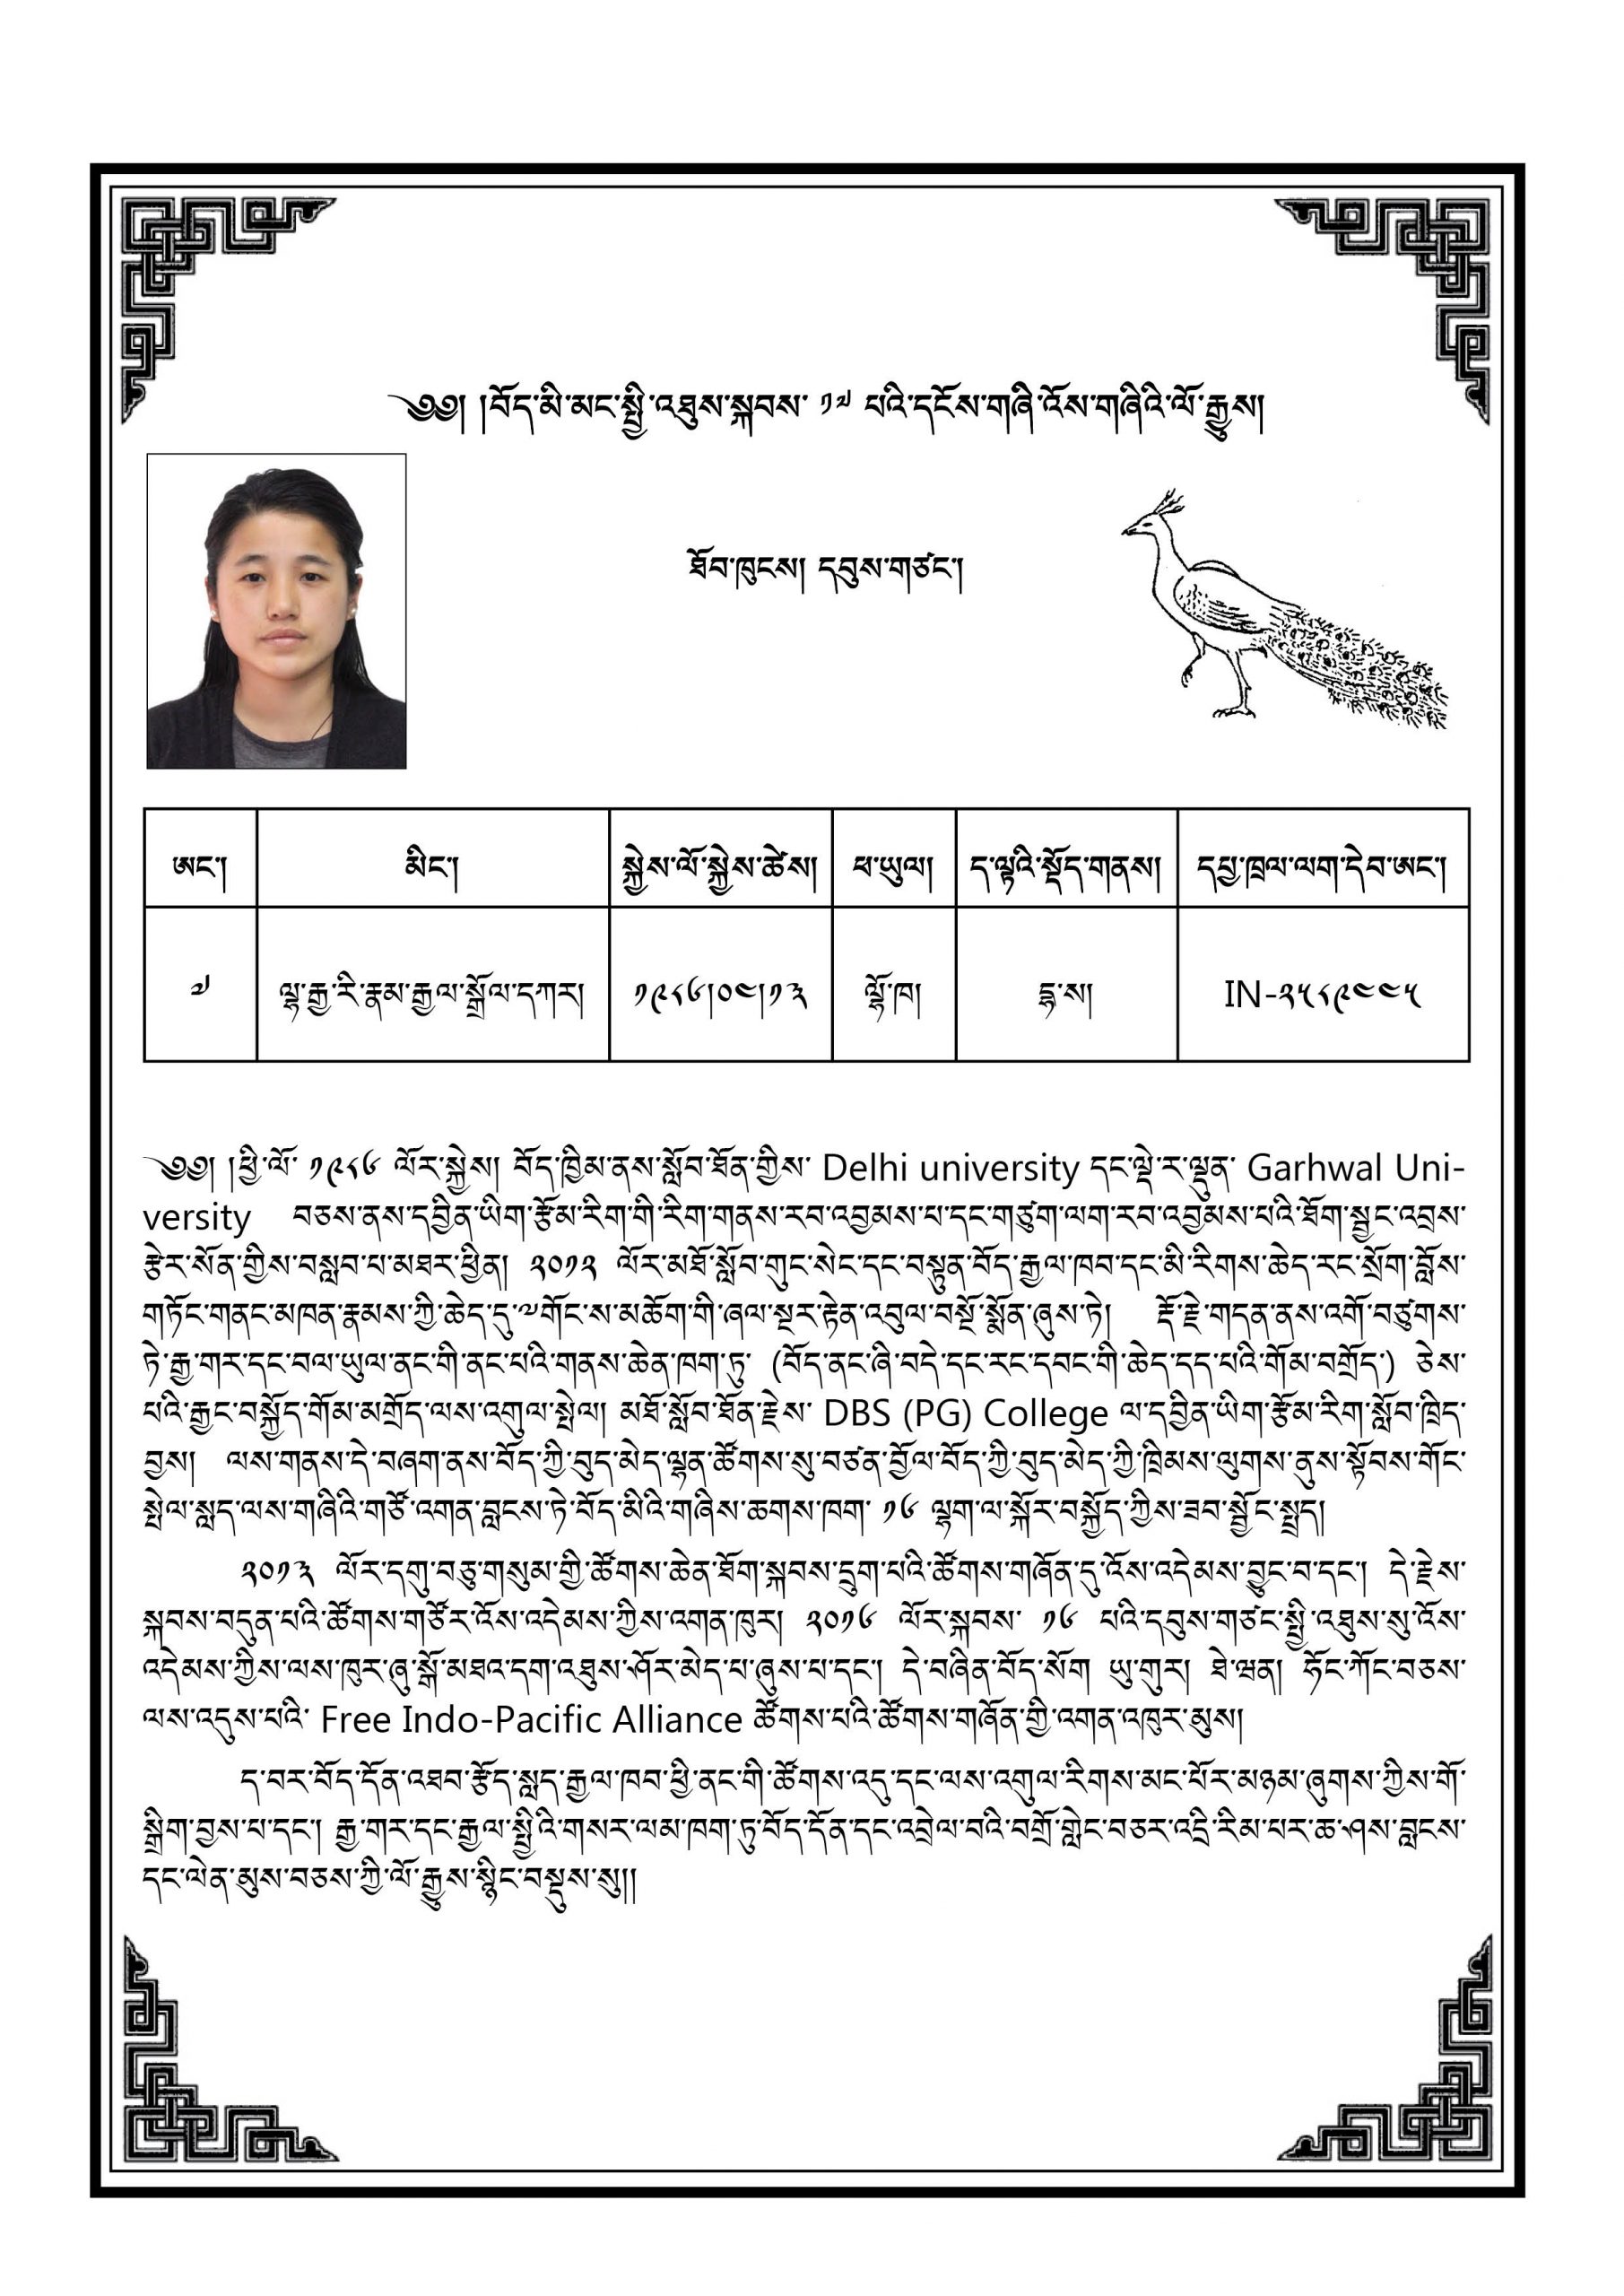 ༄༅། །བོད་མི་མང་སྤྱི་འཐུས་སྐབས་ ༡༧ པའི་དངོས་གཞི་འོས་གཞིའི་ལོ་རྒྱུས།
ཐོབ་ཁུངས། དབུས་གཙང་།
ཨང་། མིང་། སྐྱེས་ལོ་སྐྱེས་ཚེས། ཕ་ཡུལ། ད་ལྟའི་སྡོད་གནས། དཔྱ་ཁྲལ་ལག་དེབ་ཨང་།
༧ ལྷ་རྒྱ་རི་རྣམ་རྒྱལ་སྒྲོལ་དཀར། ༡༩༨༦།༠༤།༡༣ ལྷོ་ཁ། དྷ་ས། IN-༢༥༨༩༤༤༥
༄༅། །ཕྱི་ལོ་ ༡༩༨༦ ལོར་སྐྱེས། བོད་ཁྱིམ་ནས་སློབ་ཐོན་གྱིས་ Delhi university དང་ལྡེ་ར་ལྡུན་ Garhwal Uni-
versity བཅས་ནས་དབྱིན་ཡིག་རྩོམ་རིག་གི་རིག་གནས་རབ་འབྱམས་པ་དང་གཙུག་ལག་རབ་འབྱམས་པའི་ཐོག་སྦྱང་འབྲས་
རྩེར་སོན་གྱིས་བསླབ་པ་མཐར་ཕྱིན། ༢༠༡༢ ལོར་མཐོ་སློབ་གུང་སེང་དང་བསྟུན་བོད་རྒྱལ་ཁབ་དང་མི་རིགས་ཆེད་རང་སྲོག་བློས་
གཏོང་གནང་མཁན་རྣམས་ཀྱི་ཆེད་དུ་༧གོང་ས་མཆོག་གི་ཞལ་སྔར་རྟེན་འབུལ་བསྔོ་སྨོན་ཞུས་ཏེ། རྡོ་རྗེ་གདན་ནས་འགོ་བཙུགས་
ཏེ་རྒྱ་གར་དང་བལ་ཡུལ་ནང་གི་ནང་པའི་གནས་ཆེན་ཁག་ཏུ་ (བོད་ནང་ཞི་བདེ་དང་རང་དབང་གི་ཆེད་དད་པའི་གོམ་བགྲོད་) ཅེས་
པའི་རྒྱང་བསྐྱོད་གོམ་མགྲོད་ལས་འགུལ་སྤེལ། མཐོ་སློབ་ཐོན་རྗེས་ DBS (PG) College ལ་དབྱིན་ཡིག་རྩོམ་རིག་སློབ་ཁྲིད་
བྱས། ལས་གནས་དེ་བཞག་ནས་བོད་ཀྱི་བུད་མེད་ལྷན་ཚོགས་སུ་བཙན་བྱོལ་བོད་ཀྱི་བུད་མེད་ཀྱི་ཁྲིམས་ལུགས་ནུས་སྟོབས་གོང་
སྤེལ་སླད་ལས་གཞིའི་གཙོ་འགན་བླངས་ཏེ་བོད་མིའི་གཞིས་ཆགས་ཁག་ ༡༦ ལྷག་ལ་སྐོར་བསྐྱོད་ཀྱིས་ཟབ་སྦྱོང་སྤྲད།
༢༠༡༣ ལོར་དགུ་བཅུ་གསུམ་གྱི་ཚོགས་ཆེན་ཐོག་སྐབས་དྲུག་པའི་ཚོགས་གཞོན་དུ་འོས་འདེམས་བྱུང་བ་དང་། དེ་རྗེས་
སྐབས་བདུན་པའི་ཚོགས་གཙོར་འོས་འདེམས་ཀྱིས་འགན་ཁུར། ༢༠༡༦ ལོར་སྐབས་ ༡༦ པའི་དབུས་གཙང་སྤྱི་འཐུས་སུ་འོས་
འདེམས་ཀྱིས་ལས་ཁུར་ཞུ་སྒོ་མཐའ་དག་འཐུས་ཤོར་མེད་པ་ཞུས་པ་དང་། དེ་བཞིན་བོད་སོག ཡུ་གུར། ཐེ་ཝན། ཧོང་ཀོང་བཅས་
ལས་འདུས་པའི་ Free Indo-Pacific Alliance ཚོགས་པའི་ཚོགས་གཞོན་གྱི་འགན་འཁུར་མུས།
ད་བར་བོད་དོན་འཐབ་རྩོད་སླད་རྒྱལ་ཁབ་ཕྱི་ནང་གི་ཚོགས་འདུ་དང་ལས་འགུལ་རིགས་མང་པོར་མཉམ་ཞུགས་ཀྱིས་གོ་
སྒྲིག་བྱས་པ་དང་། རྒྱ་གར་དང་རྒྱལ་སྤྱིའི་གསར་ལམ་ཁག་ཏུ་བོད་དོན་དང་འབྲེལ་བའི་བགྲོ་གླེང་བཅར་འདྲི་རིམ་པར་ཆ་ཤས་བླངས་
དང་ལེན་མུས་བཅས་ཀྱི་ལོ་རྒྱུས་སྙིང་བསྡུས་སུ།།